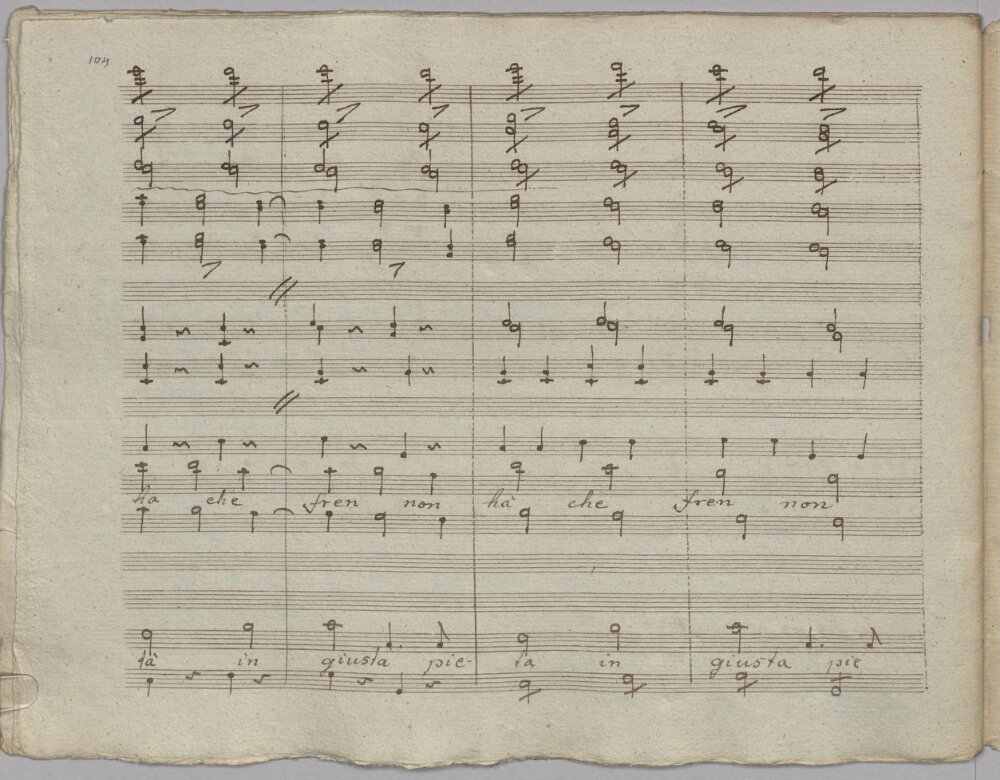 104
ha che fren non hà che fren non
tà in giusta pie- ta in giusta pie